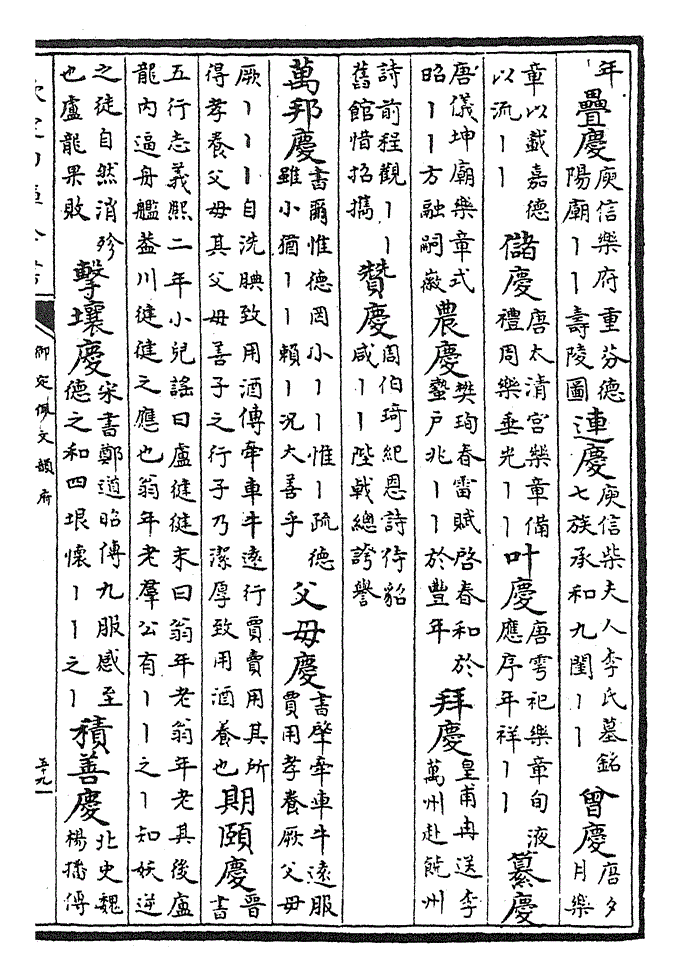 年 疊慶 庾信樂府重芬德
陽廟丨丨壽陵圖 連慶 庾信柴夫人李氏墓銘
七族承和九閨丨丨 曾慶 唐夕
月樂
章以戴嘉德
以流丨丨 儲慶 唐太清宮樂章備
禮周樂垂光丨丨 叶慶 唐雩祀樂章旬液
應序年祥丨丨 纂慶
唐儀坤廟樂章式
昭丨丨方融嗣徽 農慶 樊珣春雷賦啓春和於
蟄戶兆丨丨於豐年 拜慶 皇甫冉送李
萬州赴饒州
詩前程觀丨丨
舊館惜招攜 贊慶 周伯琦紀恩詩侍貂
咸丨丨陛戟總誇譽
萬邦慶 書爾惟德罔小丨丨惟丨疏德
雖小猶丨丨賴丨況大善乎 父母慶 書肇牽車牛遠服
賈用孝養厥父母
厥丨丨丨自洗腆致用酒傳牽車牛遠行賈賣用其所
得孝養父母其父母善子之行子乃潔厚致用酒養也 期頤慶 晉
書
五行志義熙二年小兒謠曰盧健健末曰翁年老翁年老其後盧
龍內逼舟艦蓋川健健之應也翁年老羣公有丨丨之丨知妖逆
之徒自然消殄
也盧龍果敗 擊壤慶 宋書鄭道昭傳九服感至
德之和四垠懷丨丨之丨 積善慶 北史魏
楊播傳
御定佩文韻府
五十九